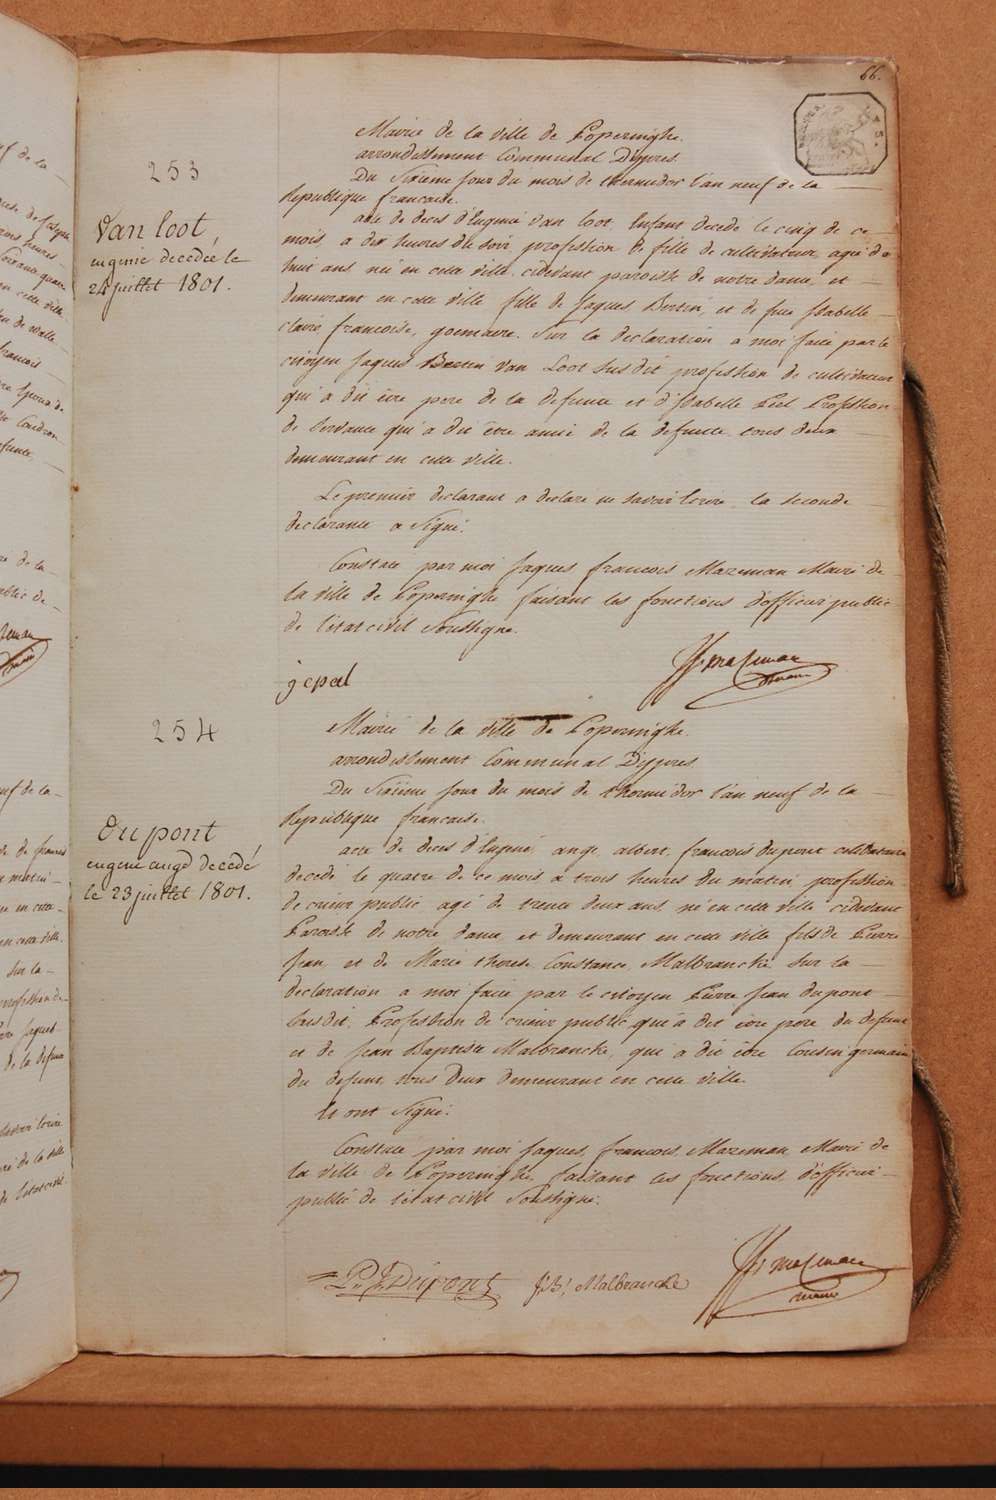 66.
253
Van loot,
eugenie decedée le
24 juillet 1801.
Mairie de la ville de Poperinghe
arrondissement Communal D'ijpres
Du Sixieme jour du mois de thermidor l'an neuf de la
Republique francaise.
acte de deces d'Eugenie van loot, Enfant decedé le cinq de ce
mois, a dix heures du soir, profession de fille de cultivateur, agée de
huit ans née en cette ville, cidevant paroisse de notre dame, et
demeurant en cette ville fille de Jaques Bertin, et de feue Isabelle
claire francoise, goemaere. Sur la declaration a moi faite par le
citoyen Jaques Bertin van Loot susdit profession de cultivateur
qui a dit être pere de la defunte et d'Isabelle Peel Profession
de servante qui a dit être amie de la defunte tous deux
demeurant en cette ville.
Le premier declarant a declare ne savoir ecrire, la seconde
declarante a Signé.
Constaté par moi Jaques francois Mazeman Maire de
la ville de Poperinghe faisant les fonctions d'officier public
de l'etat civil Soussigne.
J: mazeman
maire
254
Mairie de la ville de Poperinghe.
arrondissement Communal D'ijpres
Du Sixieme jour du mois de thermidor l'an neuf de la
Republique francaise.
Du pont
eugene ange decedé
le 23 juillet 1801.
acte de deces d'Eugene, ange, albert, francois dupont celibataire
decedé le quatre de ce mois a trois heures du matin, profession
de crieur public agé de trente deux ans, né en cette ville cidevant
Paroisse de notre dame, et demeurant en cette ville fils de Pierre
Jean, et de Marie therese, Constance, Malbrancke Sur la
declaration a moi faite par le citoyen Pierre Jean dupont
susdit, Profession de crieur public, qui a dit être pere du defunt
et de Jean Baptiste Malbrancke, qui a dit être Cousin germain
du defunt, tous deux demeurant en cette ville.
Et ont Signé.
Constaté par moi Jaques, francois, Mazeman, Maire de
la ville de Poperinghe, faisant les fonctions, d'officier
public de l'etat civil Soussigne.
P. J. Dupont J: B: Malbrancke J: mazeman
maire